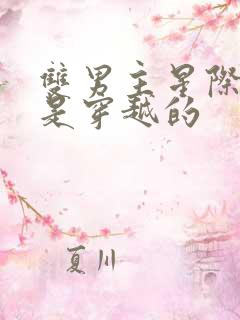 雙男主星際
是穿越的
夏川